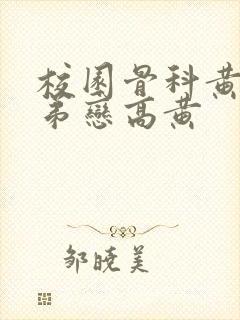 校園骨科黄
弟戀高黄
邹晓美